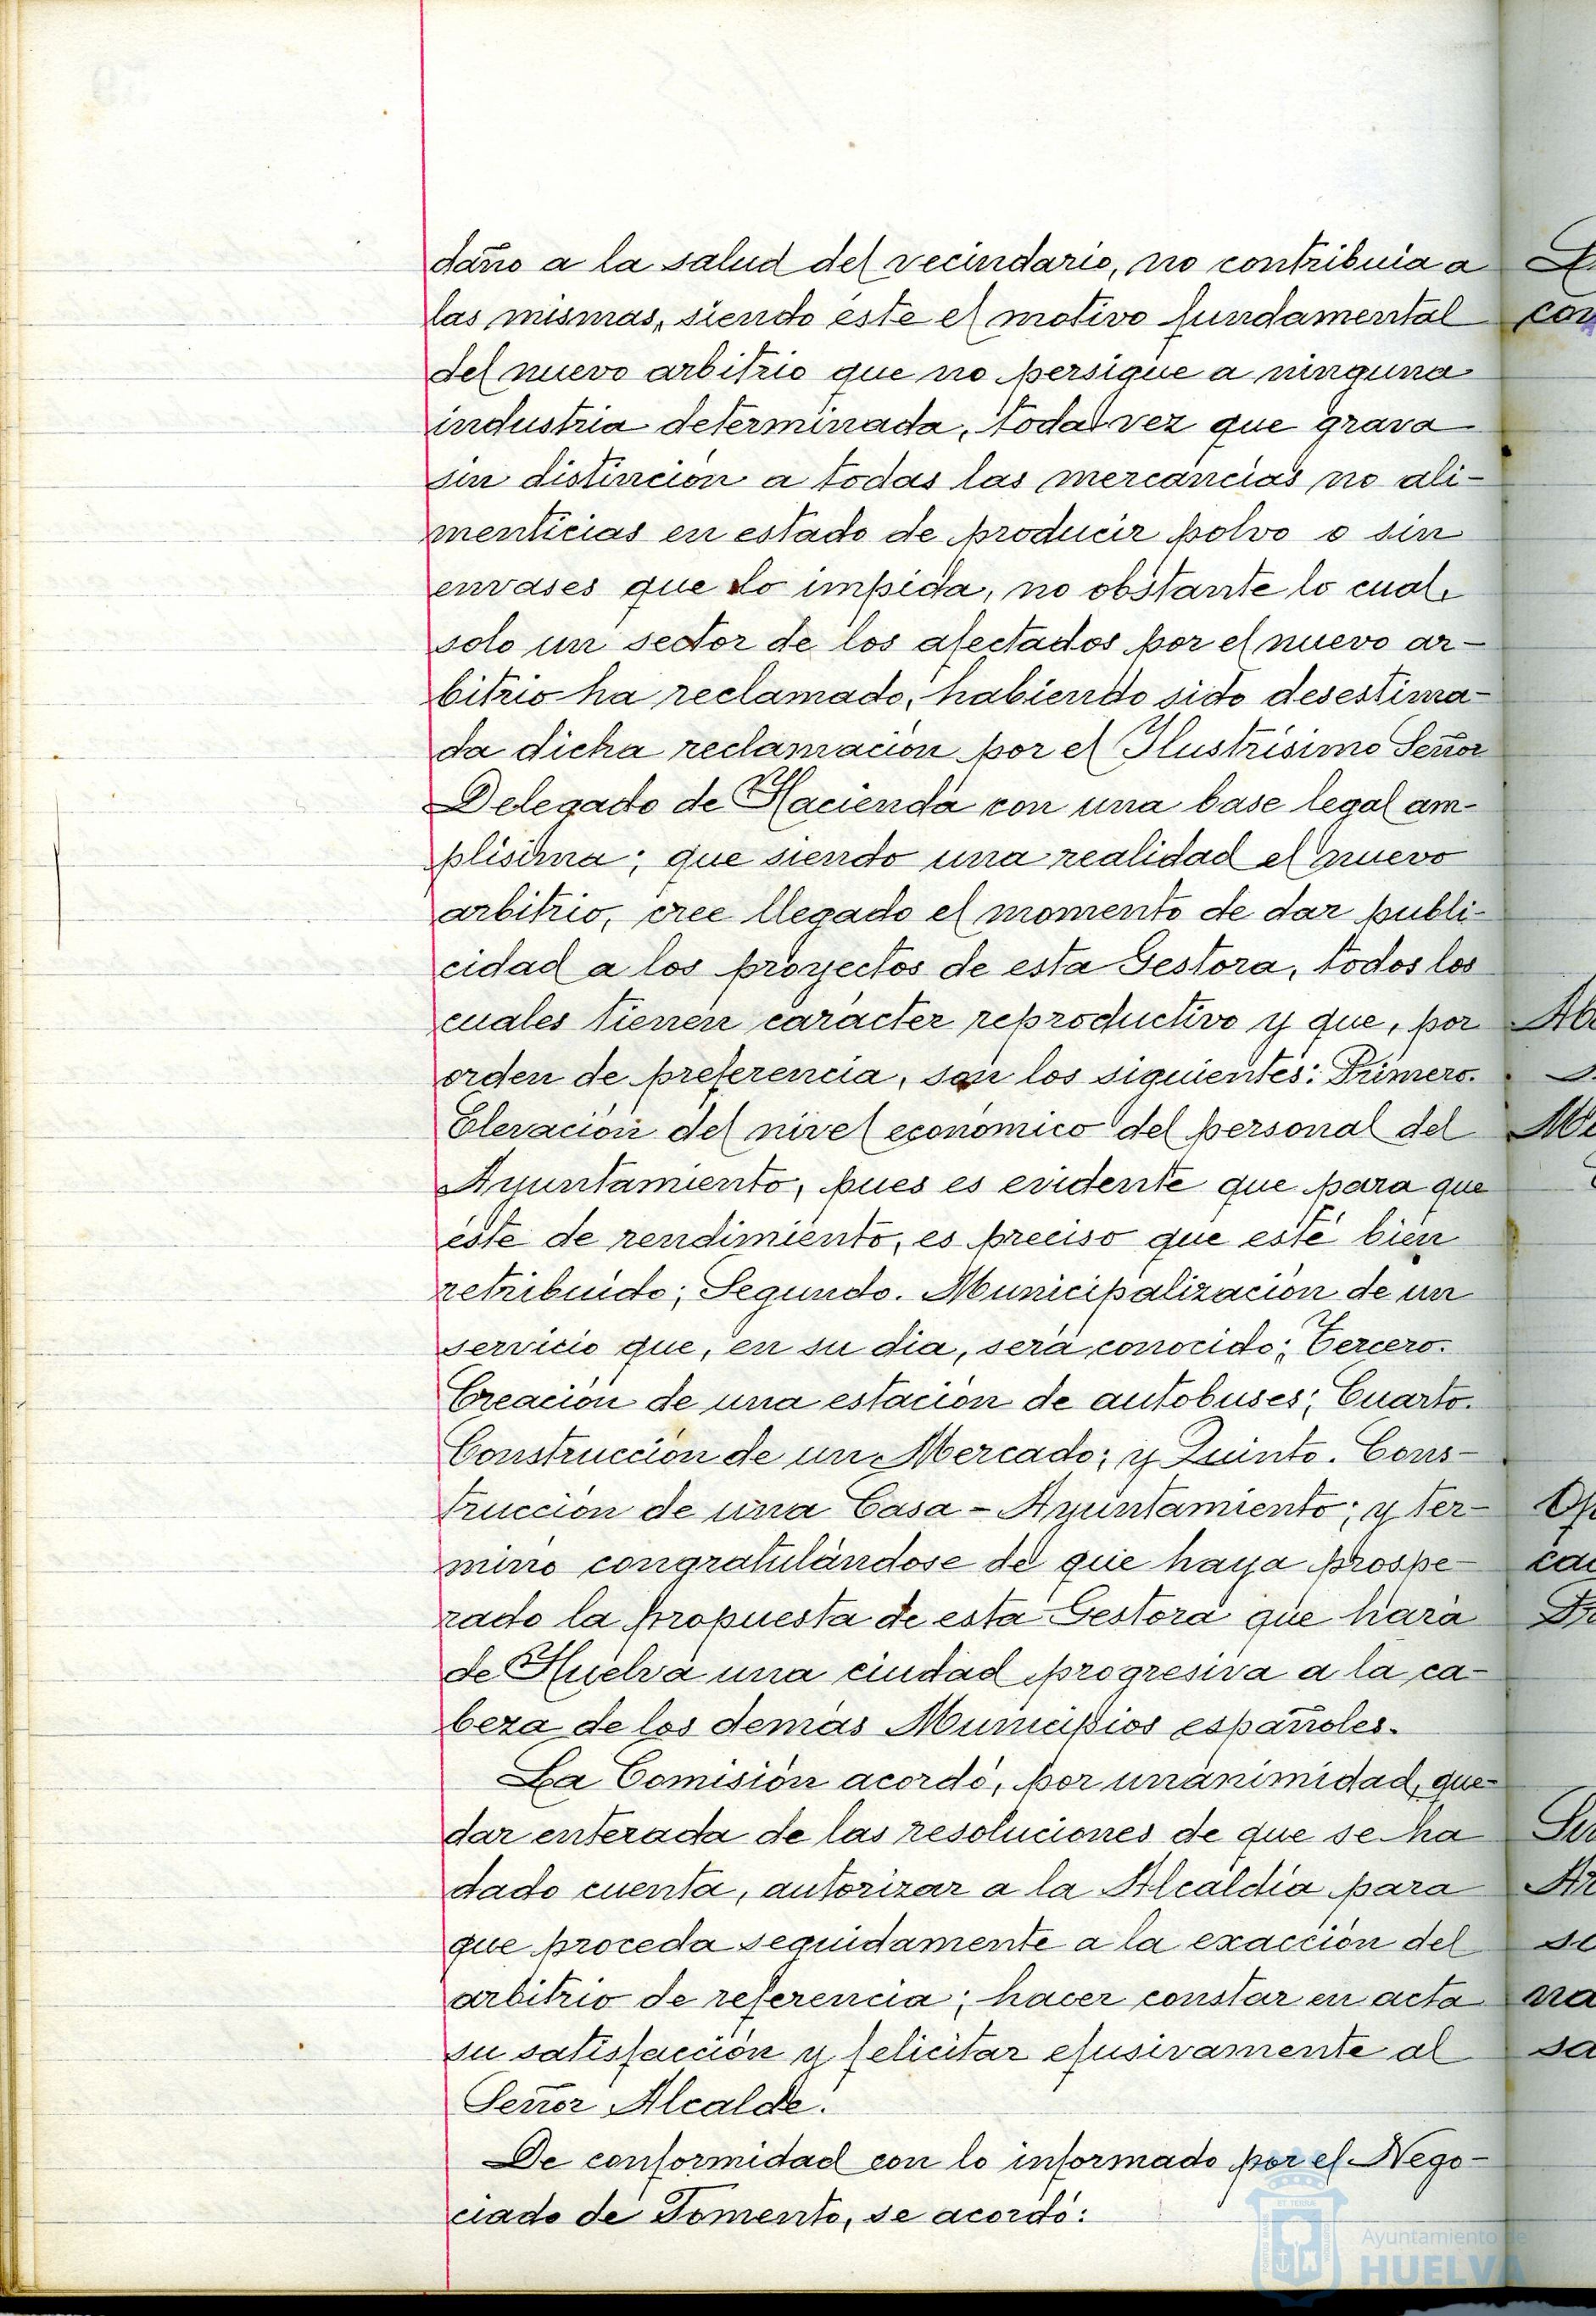 daño a la salud del vecindario, no contribuía a
las mismas, siendo éste el motivo fundamental
del nuevo arbitrio que no persigue a ninguna
industria determinada, toda vez que grava
sin distinción a todas las mercancías no ali-
menticias en estado de producir polvo o sin
envases que lo impida, no obstante lo cual
solo un sector de los afectados por el nuevo ar-
bitrio ha reclamado, habiendo sido desestima-
da dicha reclamación por el Ilustrísimo Señor
Delegado de Hacienda con una base legal am-
plísima; que siendo una realidad el nuevo
arbitrio, cree llegado el momento de dar publi-
cidad a los proyectos de esta Gestora, todos los
cuales tienen carácter reproductivo y que, por
orden de preferencia, son los siguientes: Primero.
Elevación del nivel económico del personal del
Ayuntamiento, pues es evidente que para que
éste de rendimiento, es preciso que esté bien
retribuido; Segundo. Municipalización de un
servicio que, en su día, será conocido; Tercero.
Creación de una estación de autobuses; Cuarto.
Construcción de un Mercado; y Quinto. Cons-
trucción de una Casa-Ayuntamiento; y ter-
mino congratulándose de que haya prospe-
rado la propuesta de esta Gestora que hará
de Huelva una ciudad progresiva a la ca-
beza de los demás Municipios españoles.
La Comisión acordó, por unanimidad, que-
dar enterada de las resoluciones de que se ha
dado cuenta, autorizar a la Alcaldía para
que proceda seguidamente a la exacción del
arbitrio de referencia; hacer constar en acta
su satisfacción y felicitar efusivamente al
Señor Alcalde.
De conformidad con lo informado por el Nego-
ciado de Fomento, se acordó:
Ayuntamiento de
HUELVA